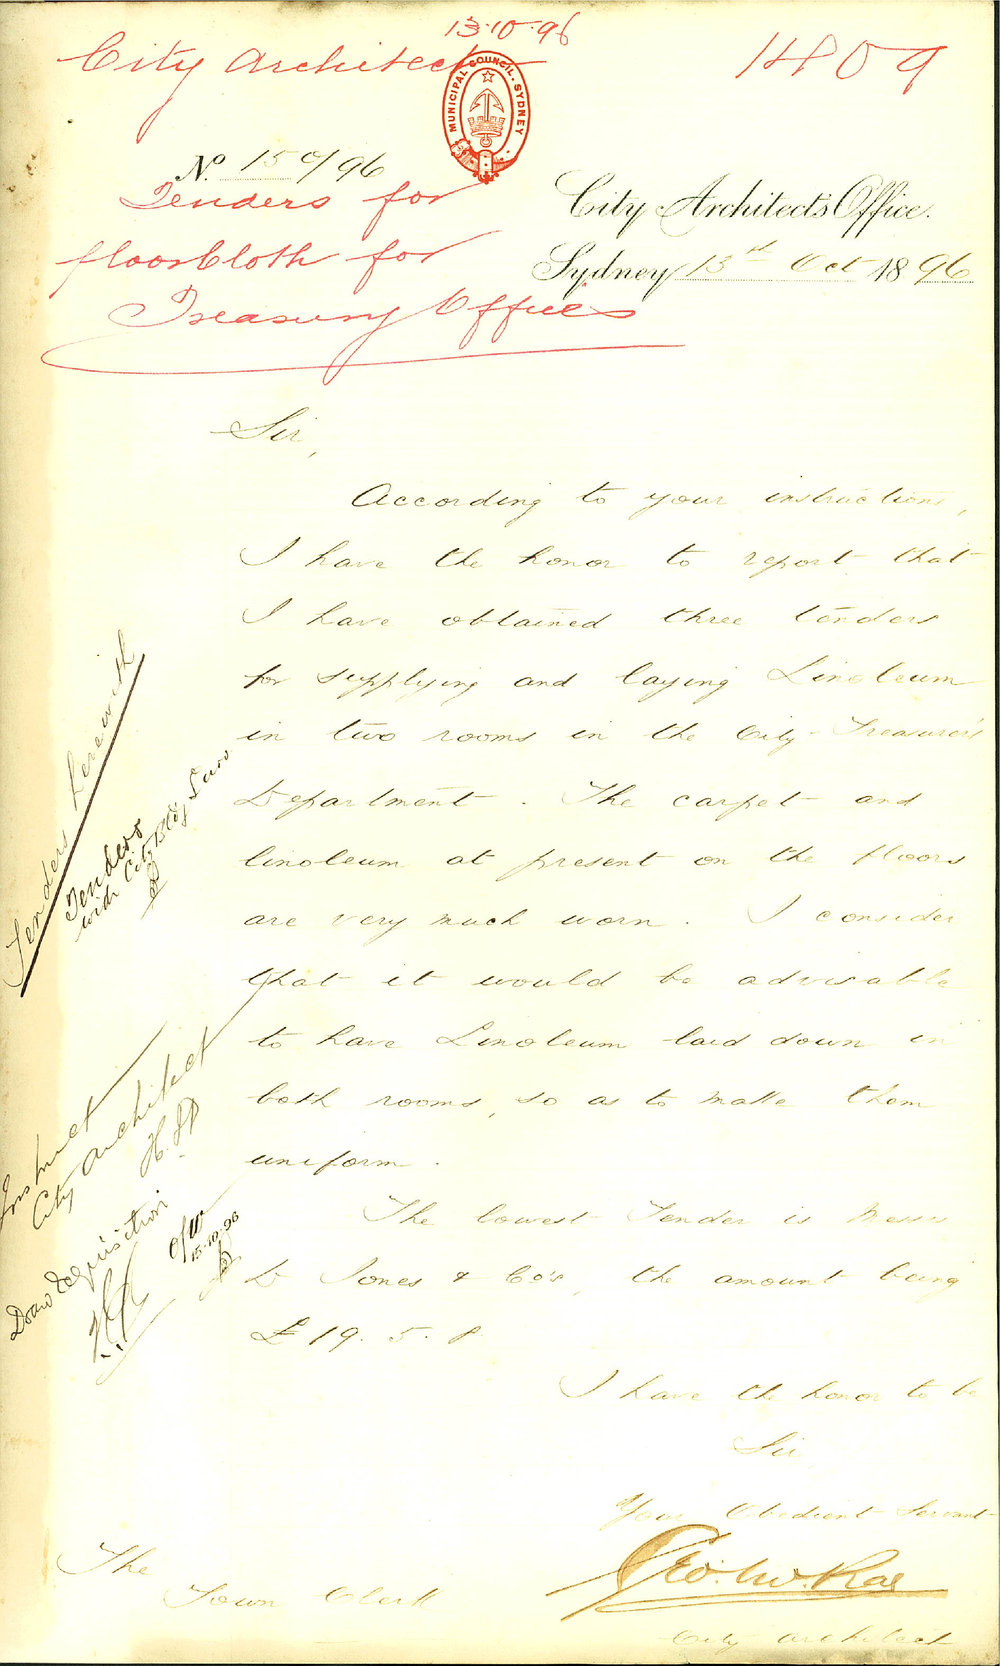 13.10.96
City Architect
1409
MUNICIPAL COUNCIL. SYDNEY
No. 150/96
Tenders for
floorcloth for
Treasury Offices
City Architect's Office.
Sydney 13th Oct 1896
Sir,
According to your instructions,
I have the honor to report that
I have obtained three tenders
for supplying and laying Linoleum
in two rooms in the City Treasurer's
Department. The carpet and
linoleum at present on the floors
are very much worn. I consider
that it would be advisable
to have Linoleum laid down in
both rooms, so as to make them
uniform.
The lowest Tender is Messrs
D Jones & Co's, the amount being
£19.5.8
I have the honor to be
Sir
Your Obedient Servant
Geo. W. Rae
City Architect
The
Town Clerk
Tenders herewith
Tenders
with City
Instruct
City Architect
Draw requisition
15.10.96